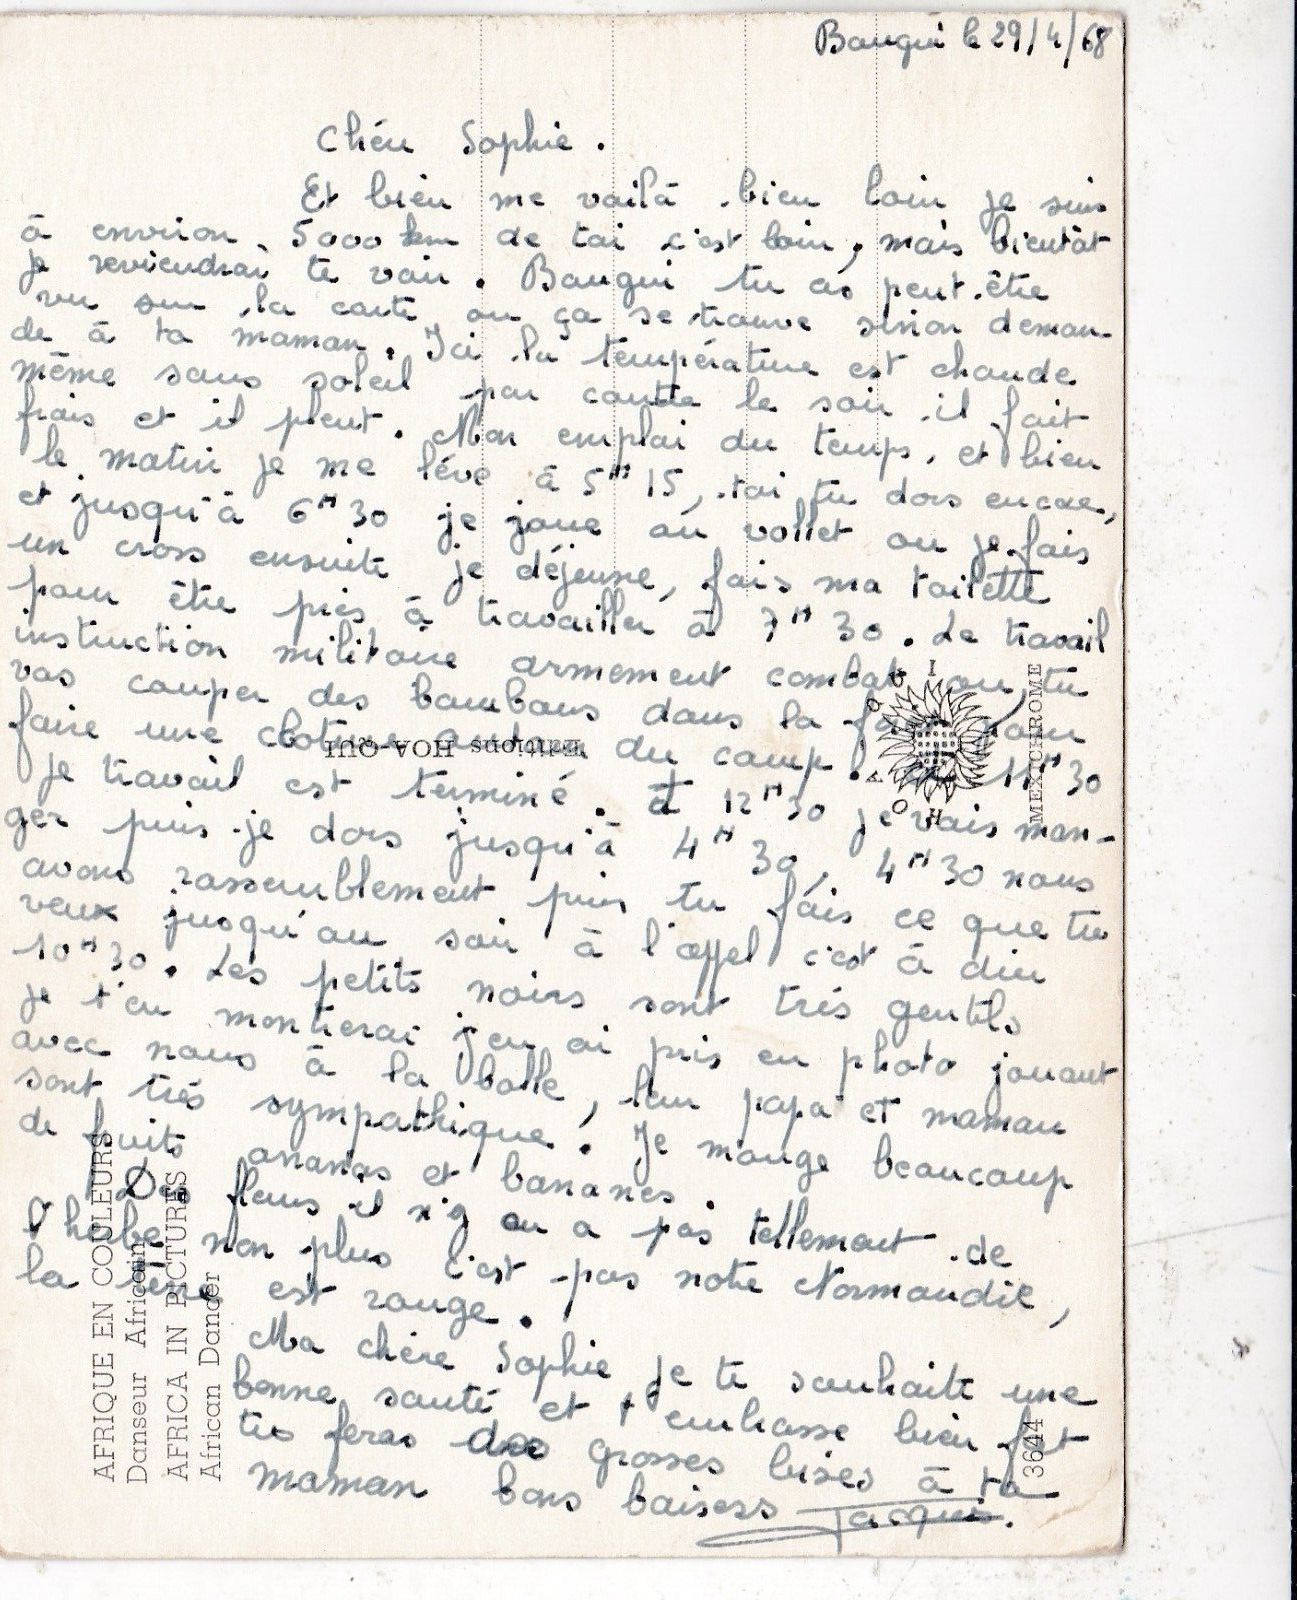 Bangui le 29/4/68
Chère Sophie.
Et bien me voilà bien loin je suis
à environ 5000 km de toi c'est loin, mais bientôt
je reviendrai te voir. Bangui tu as peut-être
vu sur la carte ou ça se trouve sinon deman-
de à ta maman. Ici la température est chaude
même sans soleil par contre le soir il fait
frais et il pleut. Mon emploi du temps, et bien
le matin je me léve à 5H15, toi tu dors encore,
et jusqu'à 6H30 je joue au vollet ou je fais
un cross ensuite je déjeune, fais ma toilette
pour être près à travailler à 7H30. Le travail
instruction militaire armement combat ou tu
vas couper des bambous dans la pour
faire une cloture autour du camp. 11H30
je travail est terminé. à 12H30 je vais man-
ger puis je dors jusqu'à 4H30, 4H30 nous
avons rassemblement puis tu fais ce que tu
veux jusqu'au soir à l'appel c'est à dire
10H30. Les petits noirs sont très gentils
je t'en montrerai j'en ai pris en photo jouant
avec nous à la balle, leur papa et maman
sont très sympathique. Je mange beaucoup
de fruits ananas et bananes.
Des fleurs il n'y en a pas tellement de
l'herbe non plus c'est pas notre Normandie,
la terre est rouge.
Ma chère Sophie je te souhaite une
bonne santé et t'embrasse bien fort
tu feras des grosses bises à ta
maman bons baisers Jacques.
Editions HOA-QUI
HOA QUI
MEXICHROME
AFRIQUE EN COULEURS
Danseur Africain
AFRICA IN PICTURES
African Dancer
3644